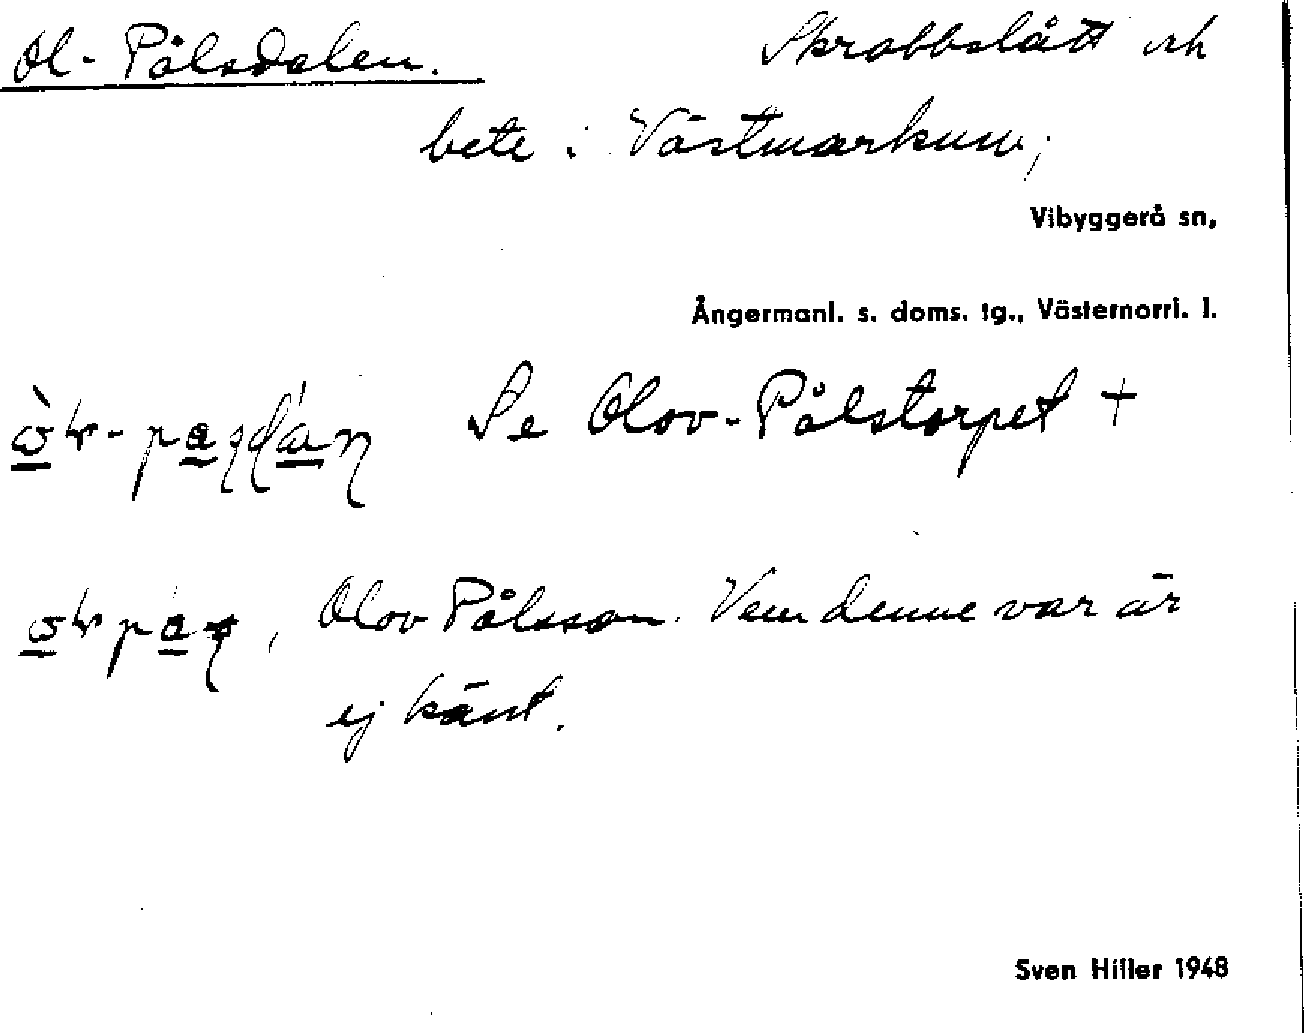 Ol-Pålsdalen. Skrabbslått och
bete i Västmarkum;
Vibyggerå sn,
Ångermanl. s. doms. tg., Västernorrl. l.
Se Olov-Pålstorpet +
Olov Pålsson. Vem denne var är
ej känt.
Sven Hiller 1948